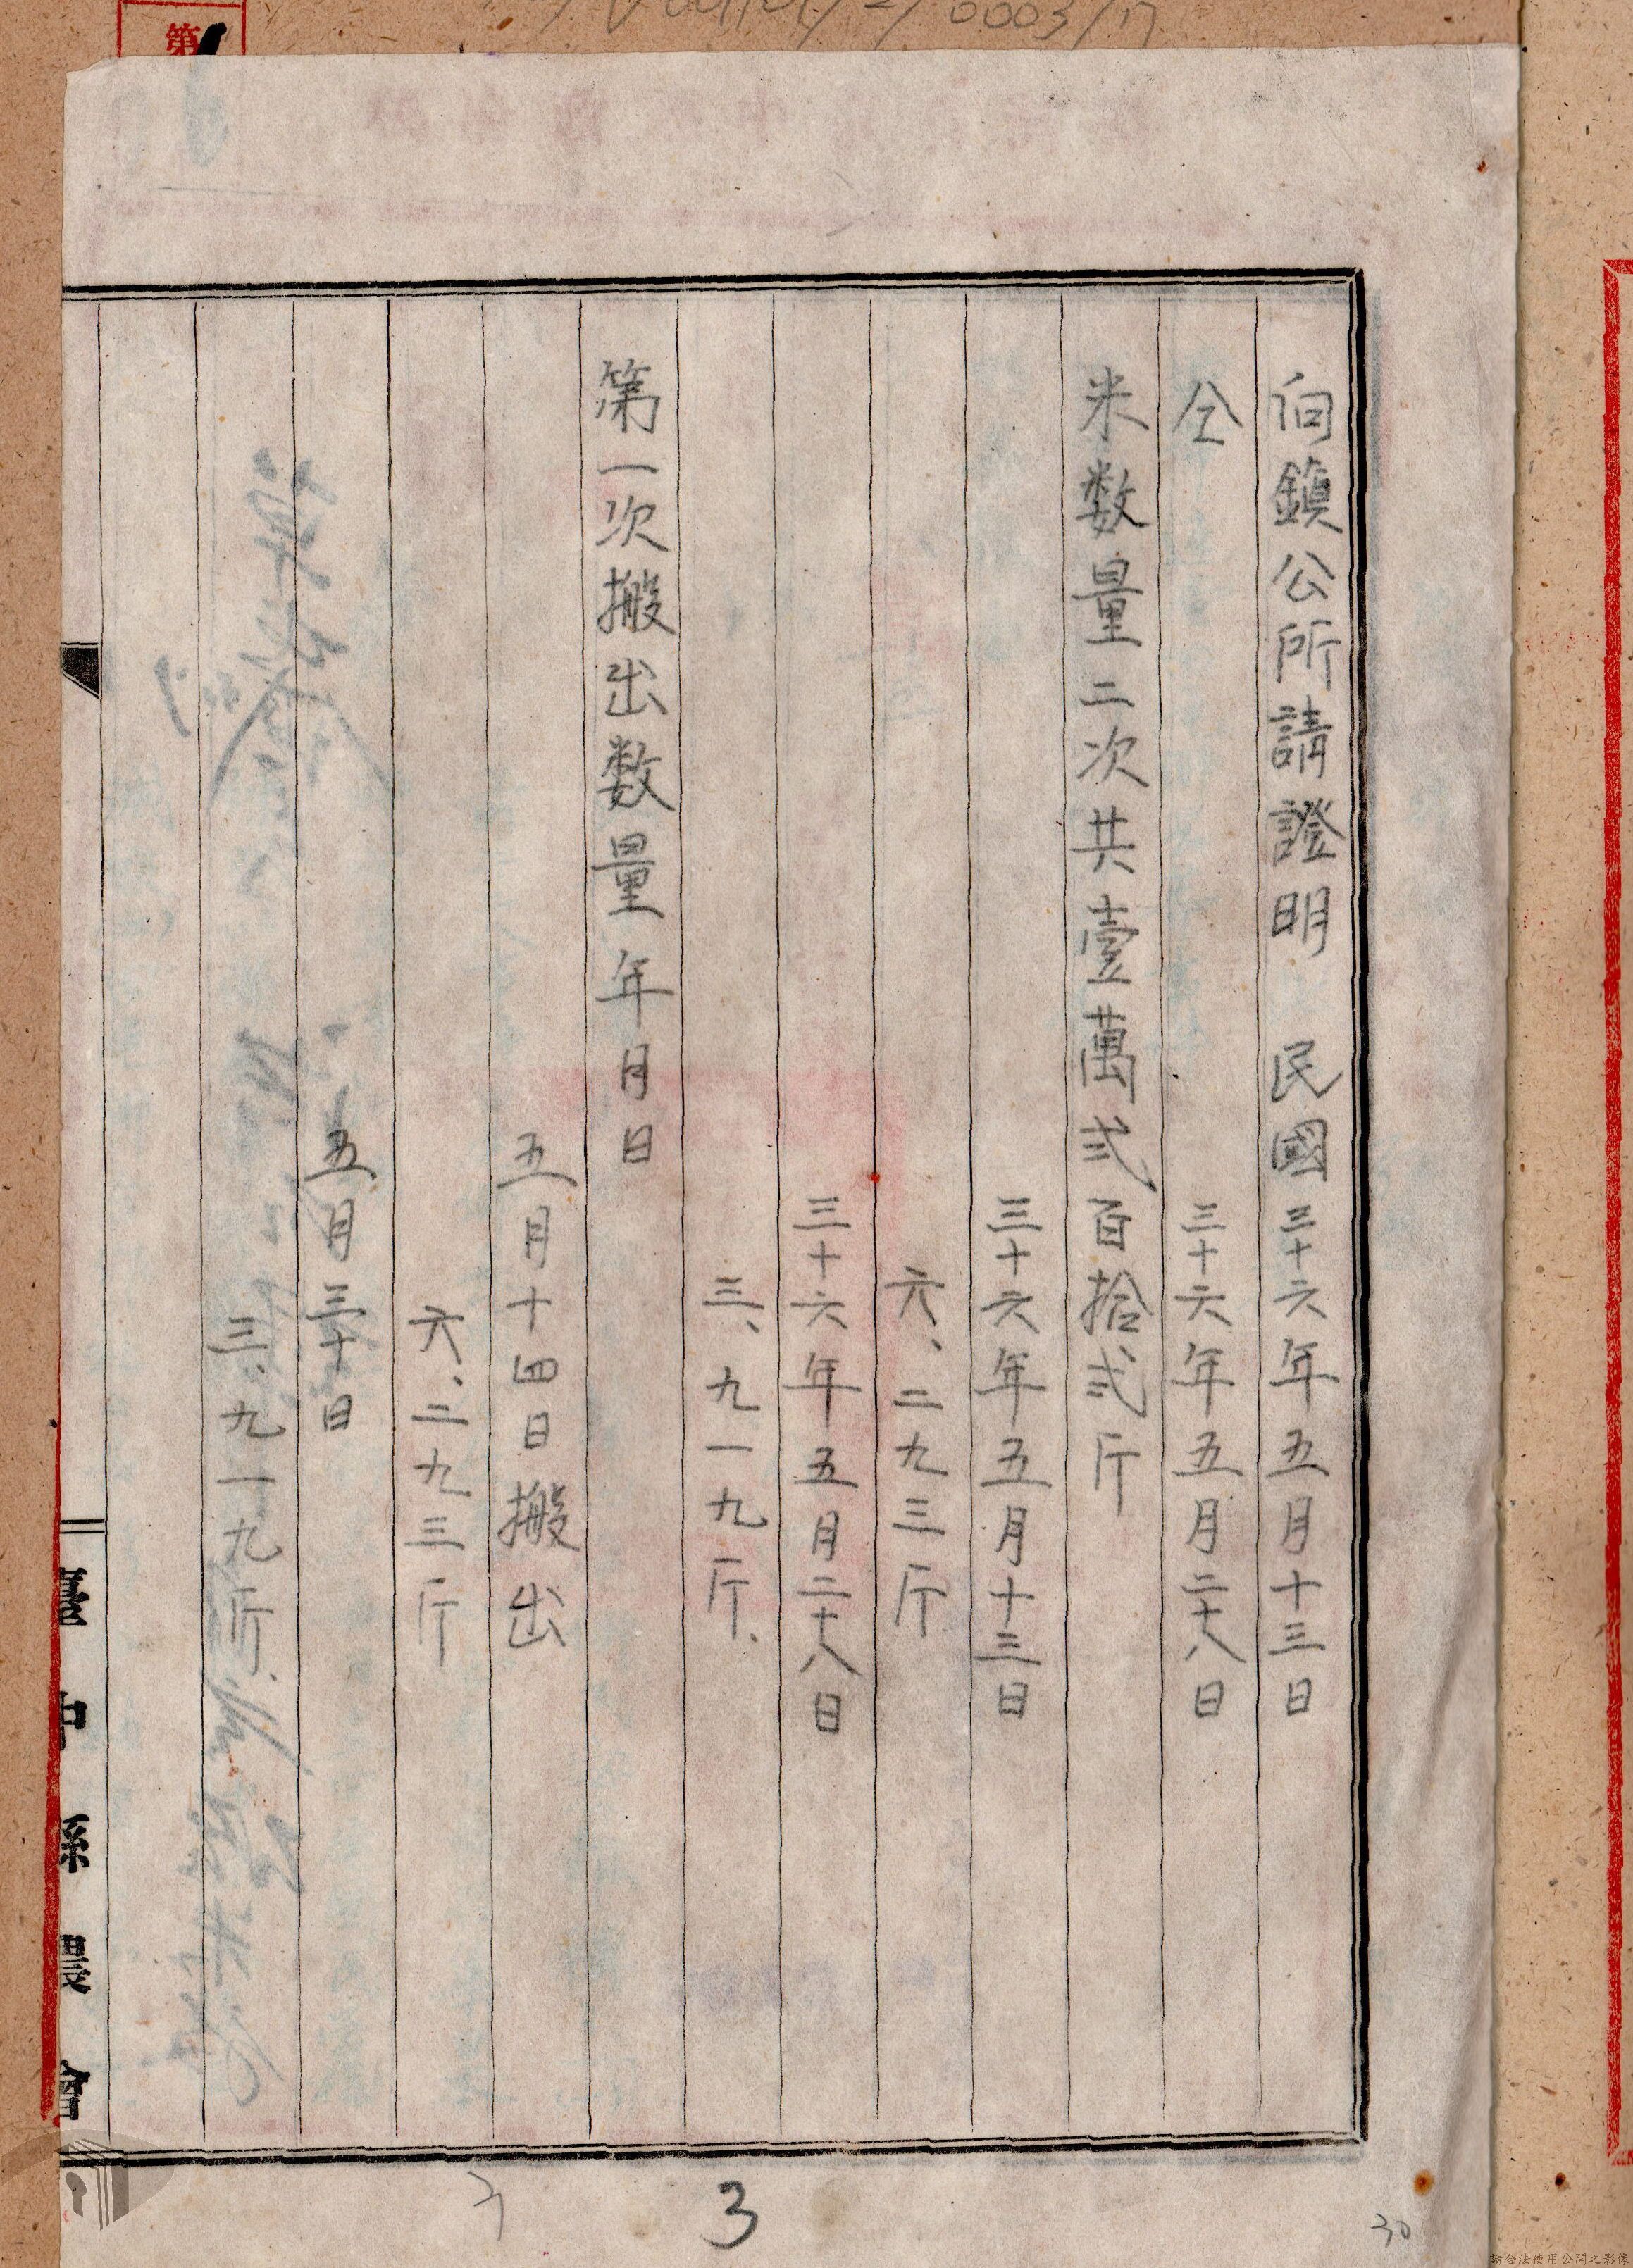 向鎮公所請證明 民國三十六年五月十三日
仝 三十六年五月二十八日
米数量二次共壹萬弍百拾弍斤
三十六年五月十三日
六、二九三斤
三十六年五月二十八日
三、九一九斤、
第一次搬出数量年月日
五月十四日搬出
六、二九三斤
五月三十日
三、九一九斤、
中縣農會
3
30
第
0003/17
請合法使用公開之影像